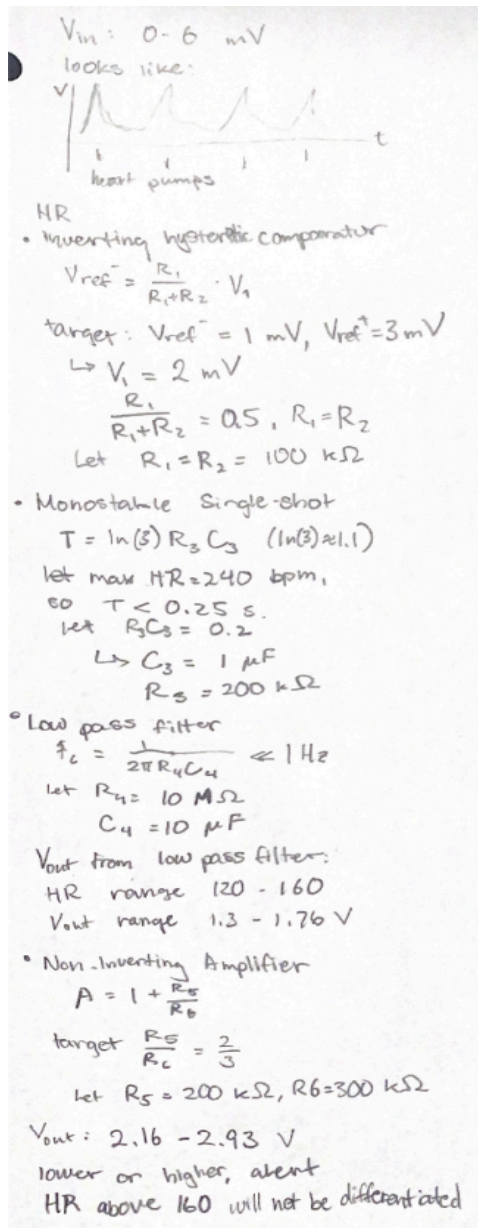 Vin: 0-6 mV
looks like:
V
t
heart pumps
HR
• inverting hysteretic comparator
Vref⁻ = R₁/(R₁+R₂) · V₁
target: Vref⁻ = 1 mV, Vref⁺ = 3 mV
↳ V₁ = 2 mV
R₁/(R₁+R₂) = 0.5, R₁ = R₂
Let R₁ = R₂ = 100 kΩ
• Monostable Single-shot
T = ln(3) R₃ C₃ (ln(3)≈1.1)
let max HR = 240 bpm,
so T < 0.25 s.
let R₃C₃ = 0.2
↳ C₃ = 1 μF
R₃ = 200 kΩ
• Low pass filter
fc = 1/(2πR₄C₄) ≪ 1 Hz
Let R₄ = 10 MΩ
C₄ = 10 μF
Vout from low pass filter:
HR range 120 - 160
Vout range 1.3 - 1.76 V
• Non-Inverting Amplifier
A = 1 + R₅/R₆
target R₅/R₆ = 2/3
Let R₅ = 200 kΩ, R6 = 300 kΩ
Vout: 2.16 - 2.93 V
lower or higher, alert
HR above 160 will not be differentiated